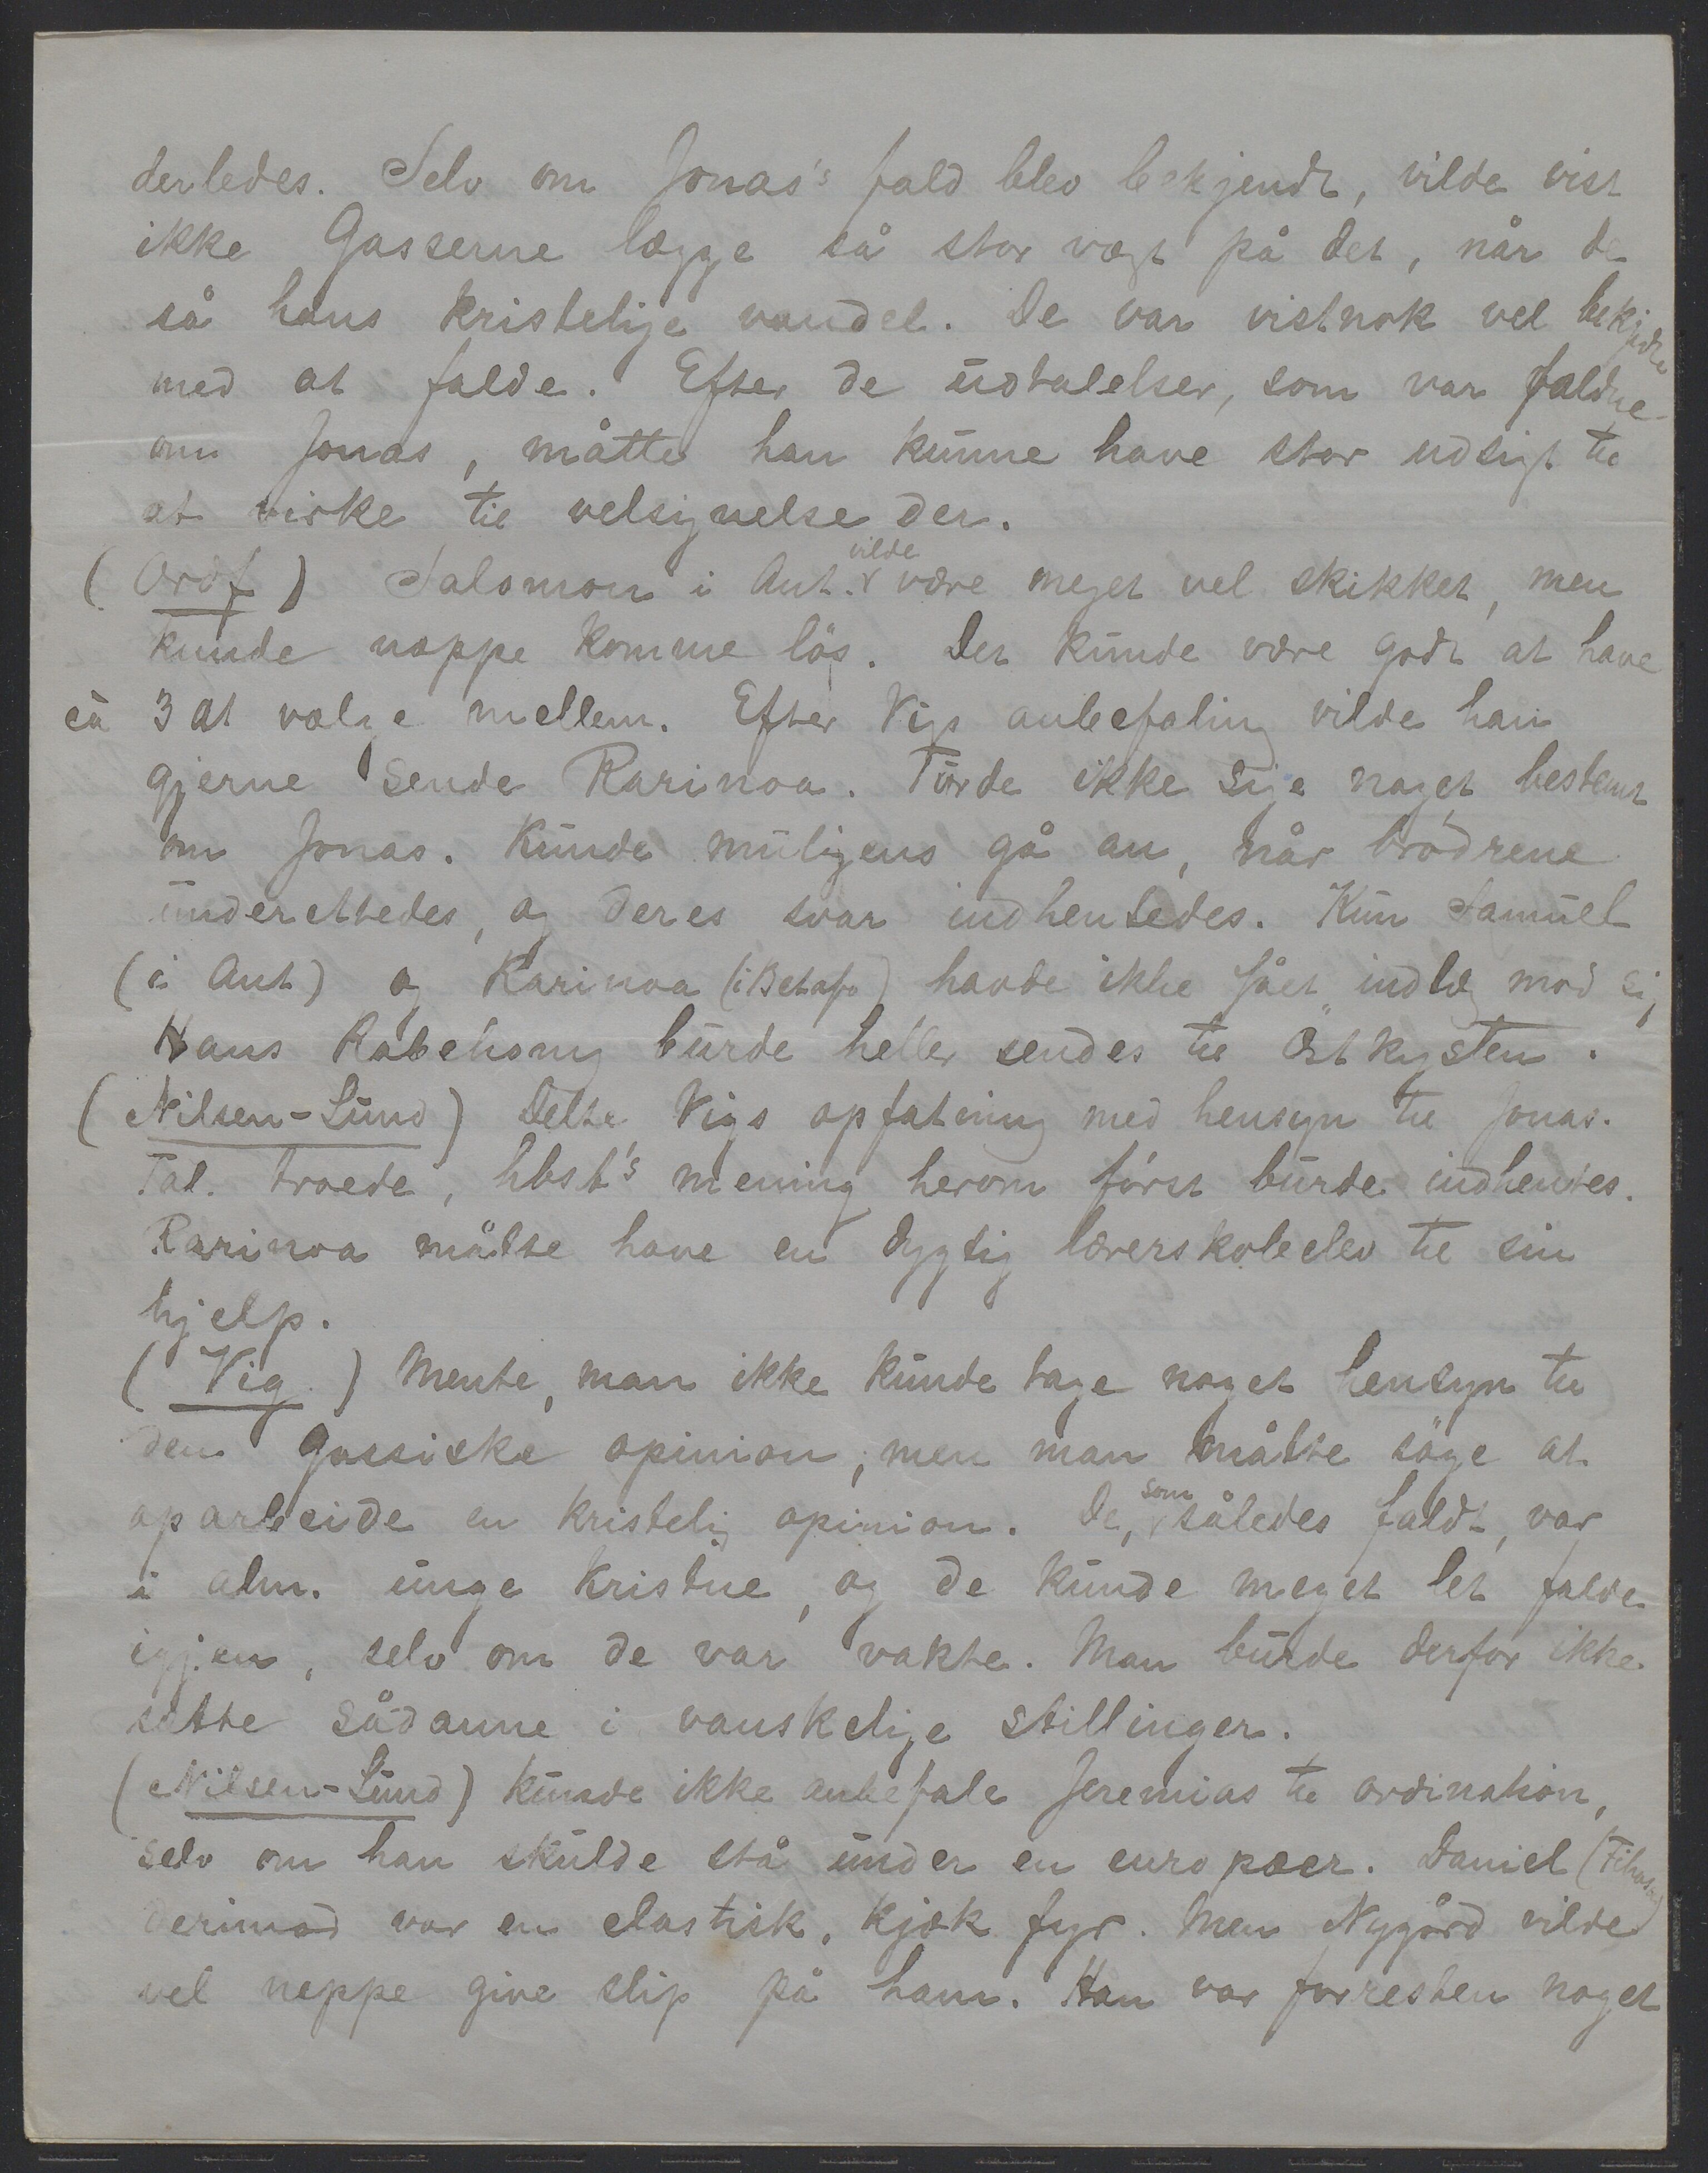 derledes. Selv om Jonas's fald blev bekjendt, vilde vist
ikke Gasserne lægge så stor vægt på det, når de
så hans kristelige vandel. De var vistnok vel
med at falde. Efter de udtalelser, som var faldne
om Jonas, måtte han kunne have stor udsigt til
at virke til velsignelse der.
(Ordf) Salomon i Ant. vilde være meget vel skikket, men
kunde næppe komme lös. Det kunde være godt at have
3 at vælge mellem. Efter Vigs anbefaling vilde han
gjerne sende Rarinoa. Turde ikke sige noget bestemt
om Jonas. Kunde muligens gå an, når brödrene
underettedes, og deres svar indhentedes. Kun Samuel
(i Ant) og Rarinoa (i Betafo) havde ikke fået indlæg mod sig
Hans Rabehony burde heller sendes til Östkysten.
(Nilsen-Lund) Delte Vigs opfatning med hensyn til Jonas.
Tal. troede, hbst's mening herom först burde indhentes.
Rarinoa måtte have en dygtig lærerskoleelev til sin
hjelp.
(Vig) Mente, man ikke kunde tage noget hensyn til
den gassiske opinion, men man måtte söge at
oparbeide en kristelig opinion. De, som således faldt, var
i alm. unge kristne, og de kunde meget let falde
igjen, selv om de var vakte. Man burde derfor ikke
sætte sådanne i vanskelige stillinger.
(Nilsen-Lund) kunde ikke anbefale Jeremias til ordination,
selv om han skulde stå under en europæer. Daniel
derimod var en elastisk, kjæk fyr. Men Nygård vilde
vel neppe give slip på ham. Han var forresten noget